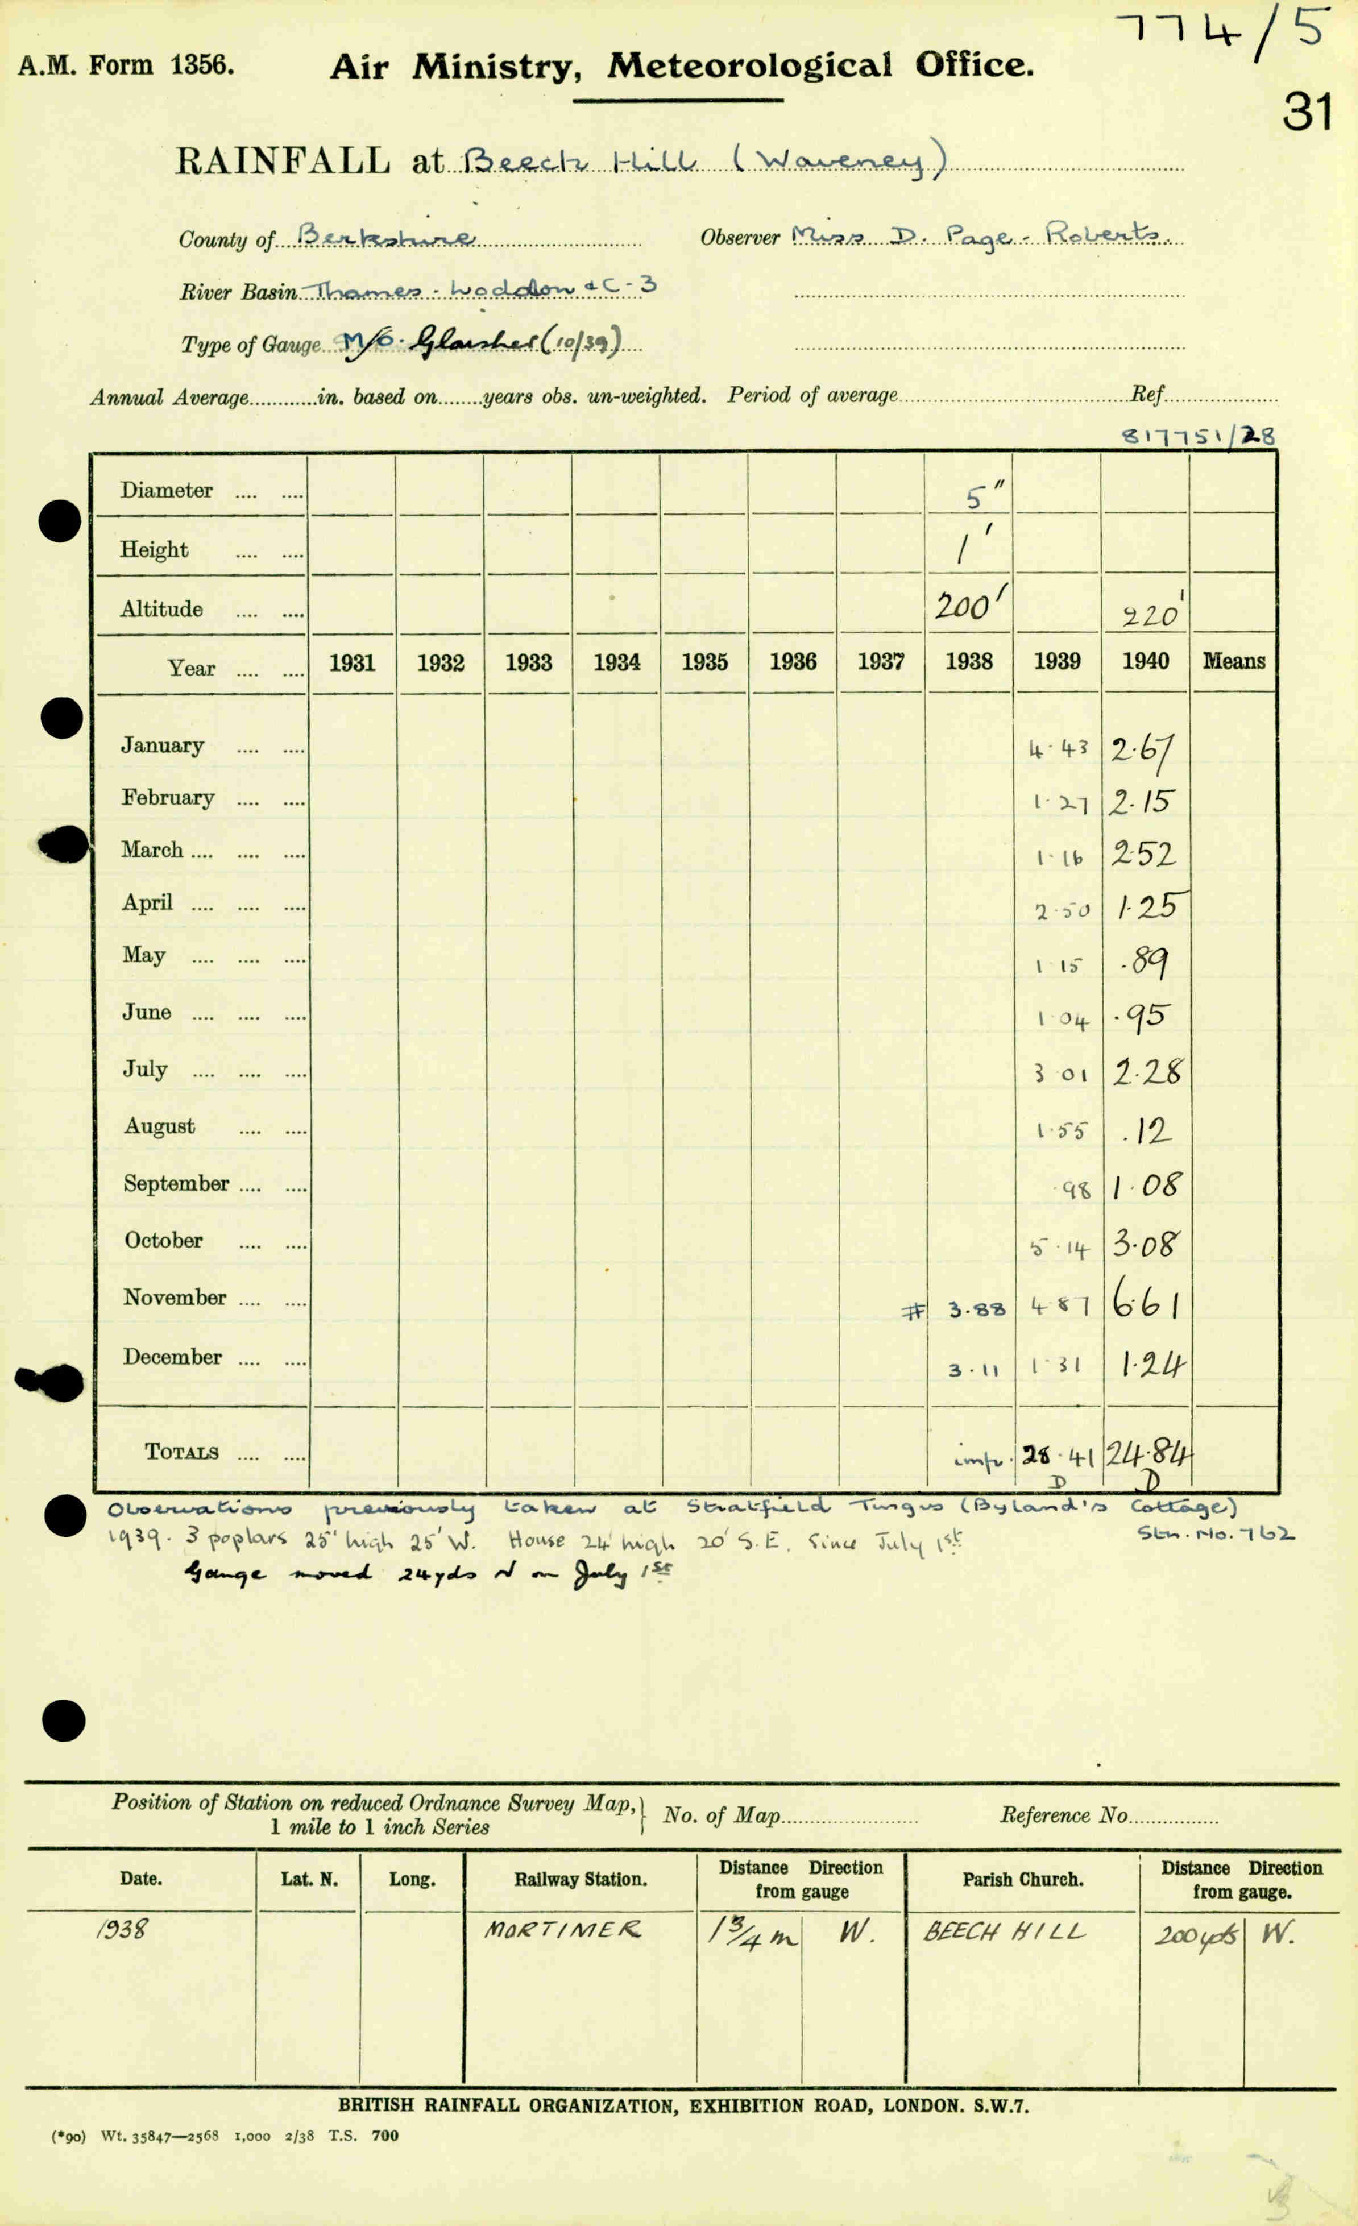 774/5
A.M. Form 1356. Air Ministry, Meteorological Office.
31
RAINFALL at Beech Hill (Waveney)
County of Berkshire Observer Miss D. Page-Roberts.
River Basin Thames - Loddon & C-3
Type of Gauge M/O. Glaisher (10/39)
Annual Average in. based on years obs. un-weighted. Period of average Ref.
817751/28
Diameter .... .... 5"
Height .... .... 1'
Altitude .... .... 200' 220'
Year .... .... 1931 1932 1933 1934 1935 1936 1937 1938 1939 1940 Means
January .... .... 4.43 2.67
February .... .... 1.27 2.15
March .... .... .... 1.16 2.52
April .... .... .... 2.50 1.25
May .... .... .... 1.15 .89
June .... .... .... 1.04 .95
July .... .... .... 3.01 2.28
August .... .... 1.55 .12
September .... .... .98 1.08
October .... .... 5.14 3.08
November .... .... # 3.88 4.87 6.61
December .... .... 3.11 1.31 1.24
TOTALS .... .... imp. 28.41 24.84
D D
Observations previously taken at Stratfield Turgis (Byland's Cottage)
Stn. No. 762
1939. 3 poplars 25' high 25' W. House 24' high 20' S.E. Since July 1st
Gauge moved 24yds N on July 1st
Position of Station on reduced Ordnance Survey Map, 1 mile to 1 inch Series } No. of Map Reference No.
Date. Lat. N. Long. Railway Station. Distance Direction from gauge Parish Church. Distance Direction from gauge.
1938 MORTIMER 1 3/4 m W. BEECH HILL 200 yds W.
BRITISH RAINFALL ORGANIZATION, EXHIBITION ROAD, LONDON. S.W.7.
(*90) Wt. 35847—2568 1,000 2/38 T.S. 700